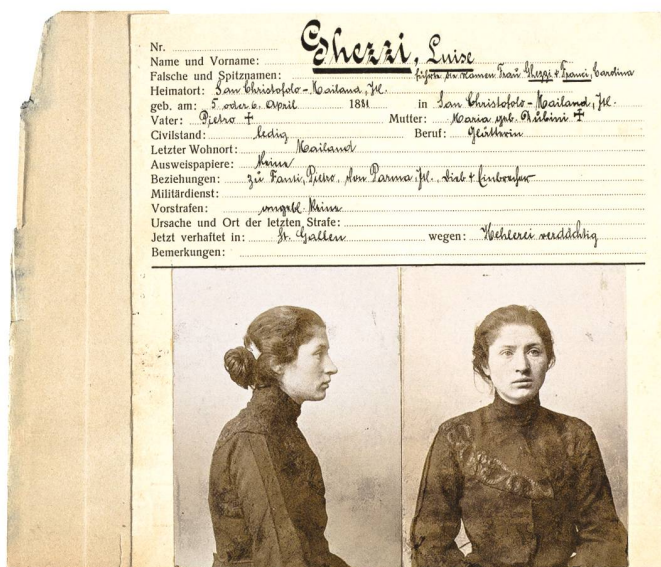 Nr.
Name und Vorname: Ghezzi, Luise
Falsche und Spitznamen: führte den Namen Frau Ghezzi & Franci, Carolina
Heimatort: San Christofolo - Mailand, Itl.
geb. am: 5. oder 6. April 1881 in San Christofolo - Mailand, Itl.
Vater: Pietro ✝ Mutter: Maria geb. Rubini ✝
Civilstand: ledig Beruf: Glätterin
Letzter Wohnort: Mailand
Ausweispapiere: Keine
Beziehungen: zu Fanti, Pietro, von Parma, Itl. Dieb & Einbrecher
Militärdienst:
Vorstrafen: angebl. Keine
Ursache und Ort der letzten Strafe:
Jetzt verhaftet in: St. Gallen wegen: Hehlerei verdächtig
Bemerkungen: